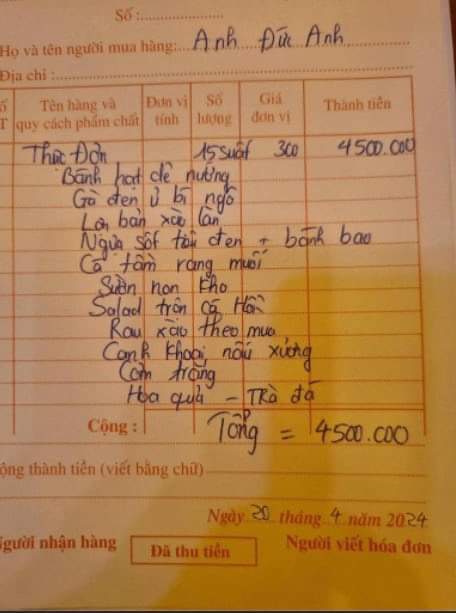 Số :
Họ và tên người mua hàng: Anh Đức Anh
Địa chỉ :
Số TT Tên hàng và quy cách phẩm chất Đơn vị tính Số lượng Giá đơn vị Thành tiền
Thực Đơn 15 suất 300 4500.000
Bánh hạt dẻ nướng
Gà đen ủ bí ngô
Lợn bản xào lăn
Ngựa sốt tỏi đen + bánh bao
Cá tầm rang muối
Sườn non kho
Salad trộn cá Hồi
Rau xào theo mùa
Canh khoai nấu xương
Cơm trắng
Hoa quả - Trà đá
Cộng : Tổng = 4500.000
ộng thành tiền (viết bằng chữ)
Ngày 20 tháng 4 năm 2024
Người nhận hàng Đã thu tiền Người viết hóa đơn